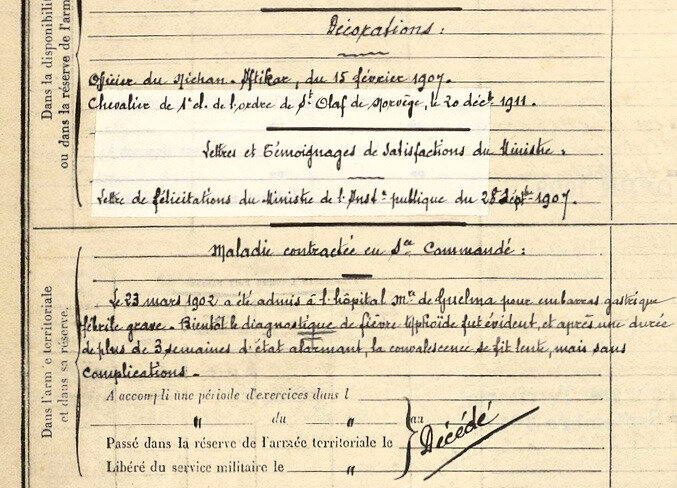 Décorations :
Officier du Nichan-Iftikar, du 15 février 1907.
Chevalier de 1e cl. de l'ordre de St Olaf de Norvège, le 20 déct 1911.
Lettres et Témoignages de Satisfactions du Ministre.
Lettre de félicitations du Ministre de l'Inst.n publique du 28 Septbre 1907.
Dans la disponibilité
ou dans la réserve de l'armée
Maladie contractée en Sce Commandé :
Le 23 mars 1902 a été admis à l'hôpital mre de Guelma pour embarras gastrique
fébrile grave. Bientôt le diagnostique de fièvre typhoïde fut évident, et après une durée
de plus de 3 semaines d'état alarmant, la convalescence se fit lente, mais sans
complications.
Dans l'armée territoriale
et dans sa réserve.
A accompli une période d'exercices dans l
" du " au
Passé dans la réserve de l'armée territoriale le
Libéré du service militaire le "
Décédé